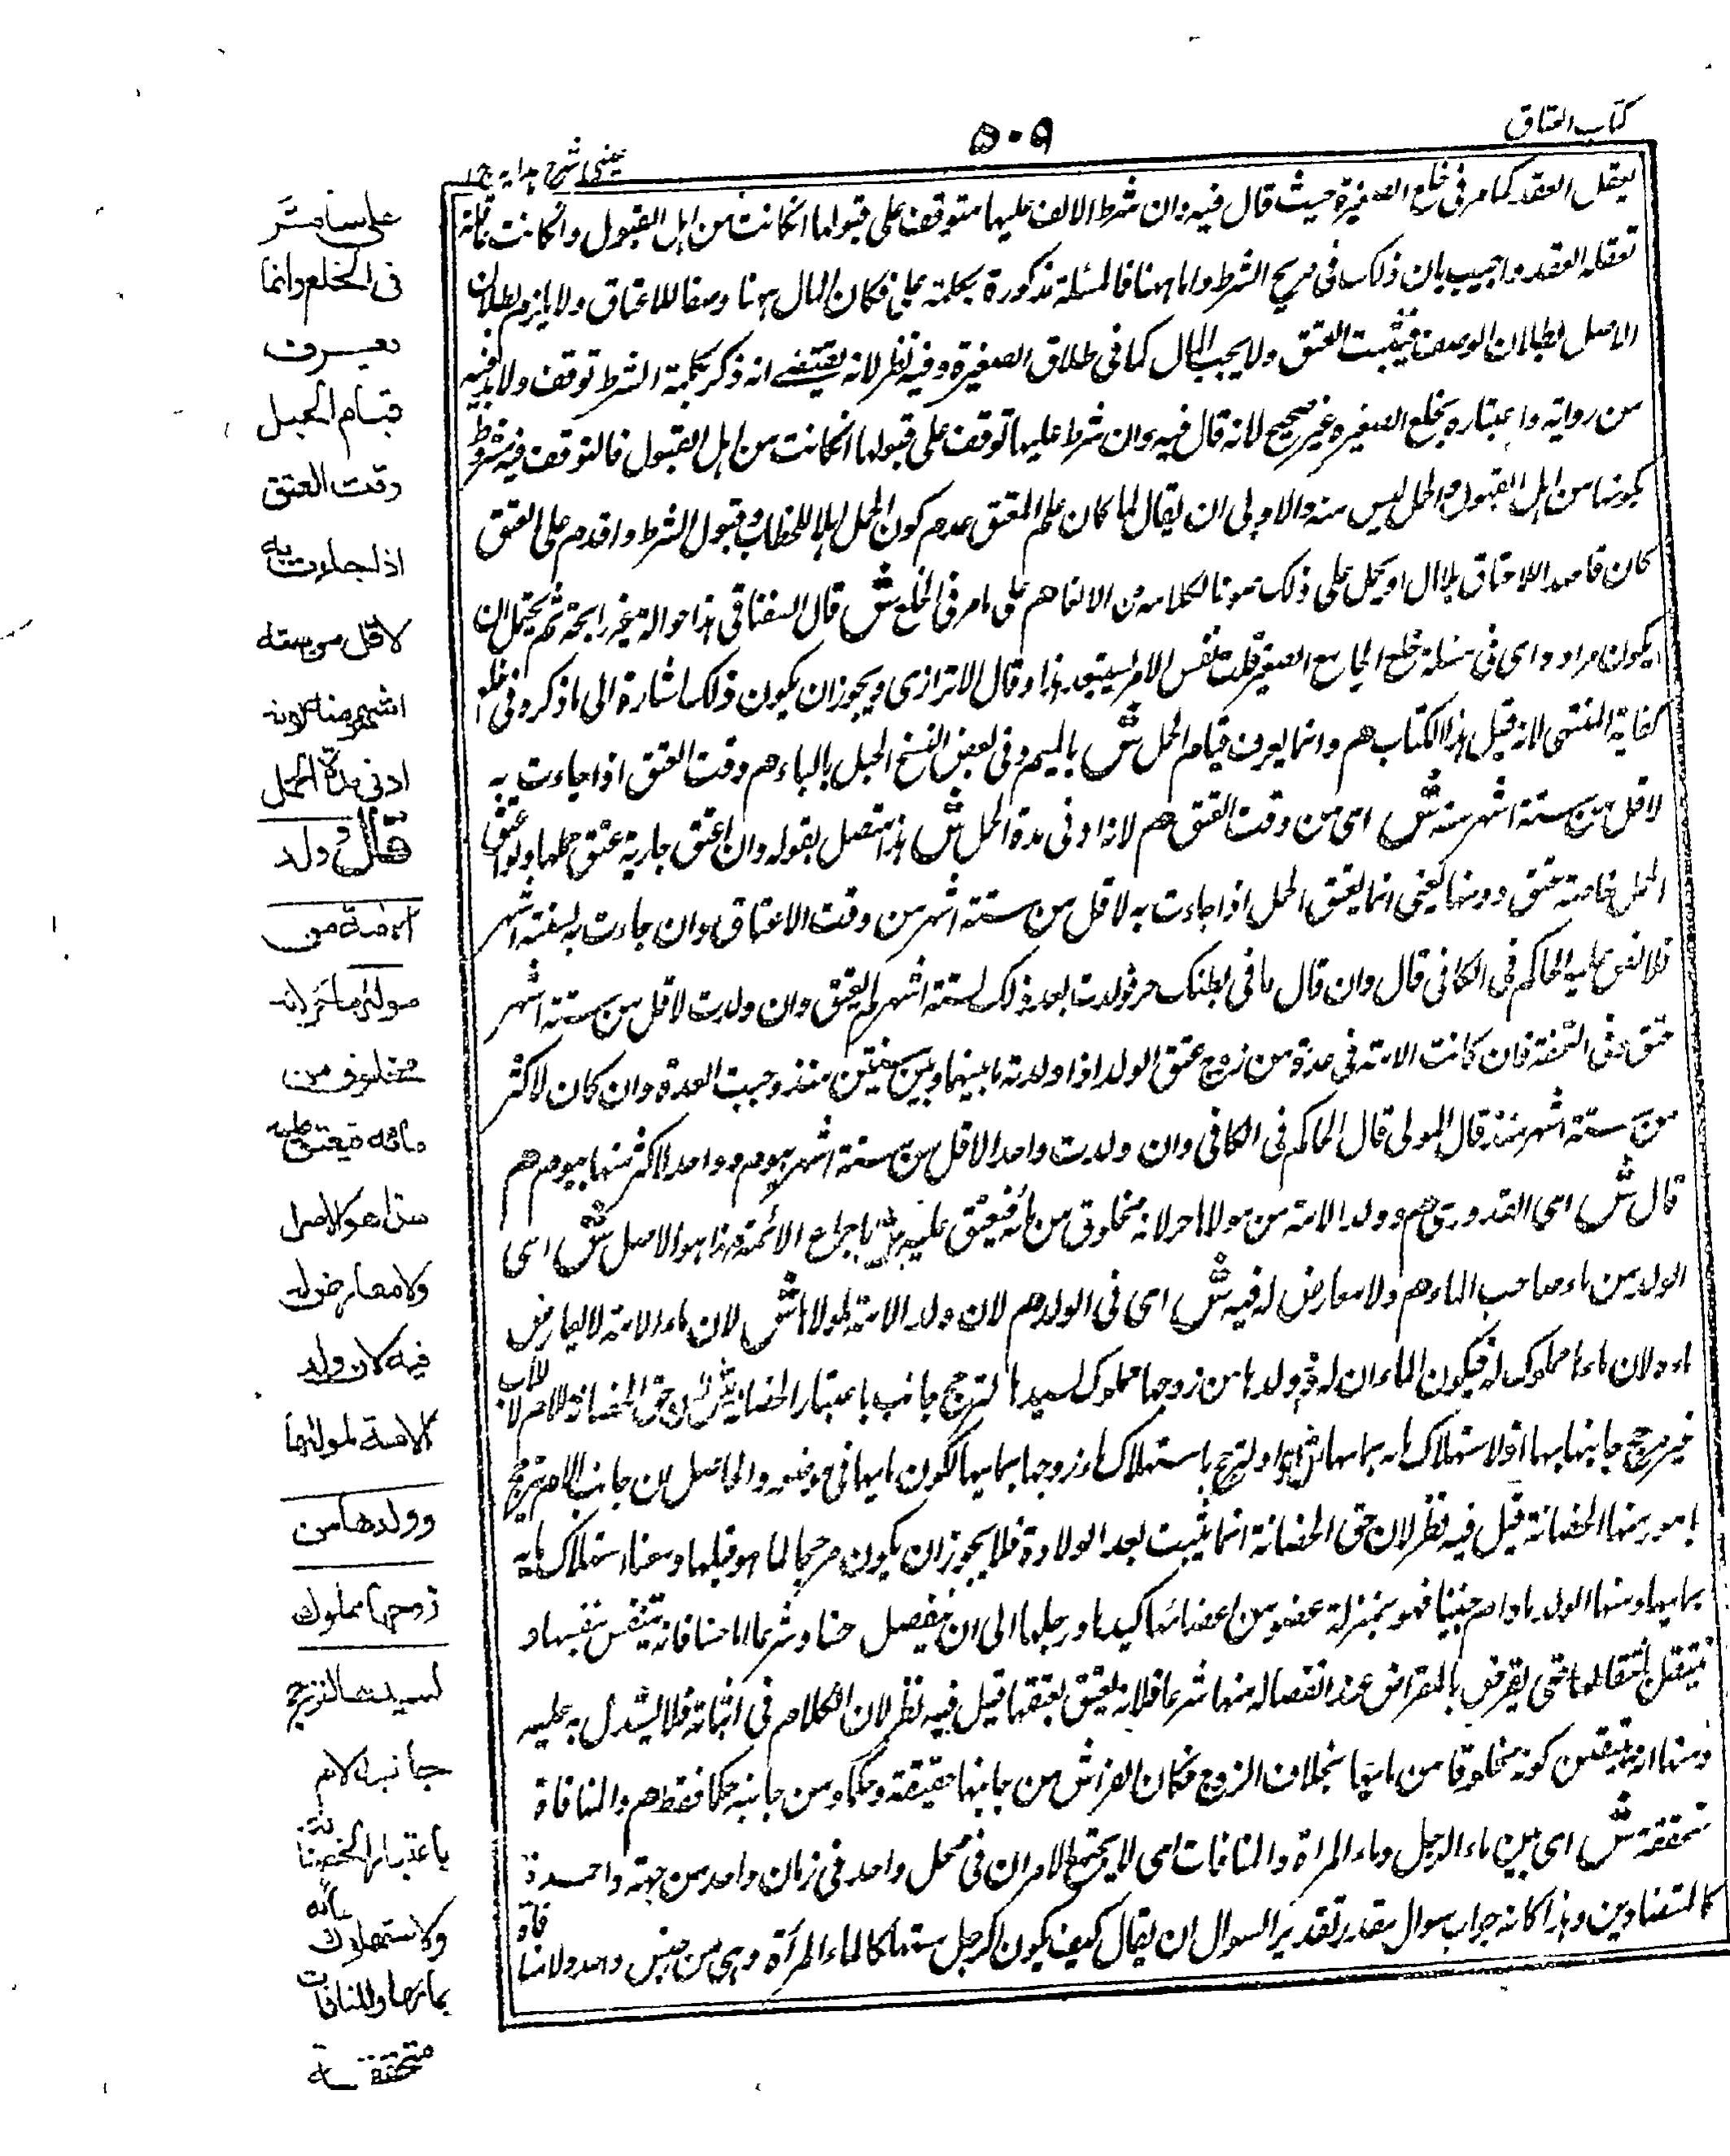 كتاب العتاق
٥٠٩
عينى شرح هدايه ج ١
يعقل العقد كما مر فى خلع الصغيرة حيث قال فيه وان شرط الالف عليها متوقف على قبولها انكانت من اهل القبول وانكانت
تعقله العقد واجيب بان ذلك فى صريح الشرط واما ههنا فالمسئلة مذكورة بكلمة على فكان المال ههنا وصفا للاعتاق ولا يلزم بطلان
الاصل لبطلان الوصف فيثبت العتق ولا يجب المال كما فى طلاق الصغيرة وفيه نظر لانه يقتضى انه ذكر بكلمة الشرط توقف ولا بد فيه
من رواية واعتباره بخلع الصغيرة غير صحيح لانه قال فيه وان شرط عليها توقف على قبولها انكانت من اهل القبول فالتوقف فيه مشروط
بكونها من اهل القبول والحمل ليس منه والاولى ان يقال لما كان علم المعتق عدم كون الحمل اهلا للخطاب وقبول الشرط واقدم على العتق
كان قاصدا للاعتاق بلا مال او يحمل على ذلك صونا لكلامه من الالغاء هم على ما مر فى الخلع ش قال السغناقى هذا حوالة غير رابحة ثم يحتمل ان
يكون مراده اى فى مسئلة خلع الجامع الصغير قلت نفس الامر يستبعد هذا وقال الاترازى ويجوز ان يكون ذلك اشارة الى ما ذكره فى خلع
كفاية المنتهى لانه قبل هذا الكتاب هم وانما يعرف قيام الحمل ش بالميم وفى بعض النسخ الحبل بالباء هم وقت العتق اذا جاءت به
لاقل من ستة اشهر منه ش اى من وقت العتق هم لانه ادنى مدة الحمل ش هذا متصل بقوله وان اعتق جارية عتق حملها ولو اعتق
الحمل خاصة عتق دونها يعنى انما يعتق الحمل اذا جاءت به لاقل من ستة اشهر من وقت الاعتاق وان جاءت به لستة اشهر
فلا نص عليه الحاكم فى الكافى قال وان قال ما فى بطنك حر فولدت بعد ذلك لستة اشهر لم يعتق وان ولدت لاقل من ستة اشهر
عتق وفى التحفة فان كانت الامة فى عدة من زوج عتق الولد اذا ولدته ما بينهما وبين سنتين منذ وجبت العدة وان كان لاكثر
من ستة اشهر منذ قال المولى قال الحاكم فى الكافى وان ولدت واحدا لاقل من ستة اشهر بيوم وواحدا لاكثر منها بيوم هم
قال ش اى القدورى هم وولد الامة من مولاها حر لانه مخلوق من مائه فيعتق عليه ش باجماع الائمة هم هذا هو الاصل ش اى
الولد من ماء صاحب الماء هم ولا معارض له فيه ش اى فى الولد هم لان ولد الامة لمولاها ش لان ماء الامة لا يعارض
ماءه ولان ماءها مملوك له فيكون الماءان له هم وولدها من زوجها مملوك لسيدها لترجح جانب باعتبار الحضانة ش لان حق الحضانة للام لا للاب
فيرجح جانبها بها او لاستهلاك مائه بمائها ش اى او لترجح باستهلاك ماء زوجها بمائها لكون مائها فى موضعه والحاصل ان جانب الام ترجح
بامور منها الحضانة قيل فيه نظر لان حق الحضانة انما يثبت بعد الولادة فلا يجوز ان يكون مرجحا لما هو قبلها ومنها استهلاك مائه
بمائها ومنها الولد ما دام جنينا فهو بمنزلة عضو من اعضائها كيدها ورجلها الى ان ينفصل حسا وشرعا اما حسا فانه يتنفس بنفسها و
ينتقل بانتقالها حتى يقرض بالمقراض عند انفصاله منها شرعا فلانه يعتق بعتقها قيل فيه نظر لان الكلام فى اثباته فلا يستدل به عليه
ومنها انه يتيقن كونه مخلوقا من مائها بخلاف الزوج فكان الفراش من جانبها حقيقة وحكما ومن جانبه حكما فقط هم والمنافاة
متحققة ش اى بين ماء الرجل وماء المراة والمنافات اى لا يجتمع الامران فى محل واحد فى زمان واحد من جهة واحدة
كالمتضادين وهذا كانه جواب سوال مقدر تقدير السوال ان يقال كيف يكون الرجل مستهلكا لماء المرأة وهى من جنس واحد ولا منافاة
على ما مر
فى الخلع وانما
يعرف
قيام الحبل
وقت العتق
اذا جاءت به
لاقل من ستة
اشهر منه لانه
ادنى مدة الحمل
قال وولد
الامة من
مولاها حر لانه
مخلوق من
مائه فيعتق عليه
هذا هو الاصل
ولا معارض له
فيه لان ولد
الامة لمولاها
وولدها من
زوجها مملوك
لسيدها لترجح
جانب الام
باعتبار الحضانة
ولاستهلاك مائه
بمائها والمنافات
متحققة